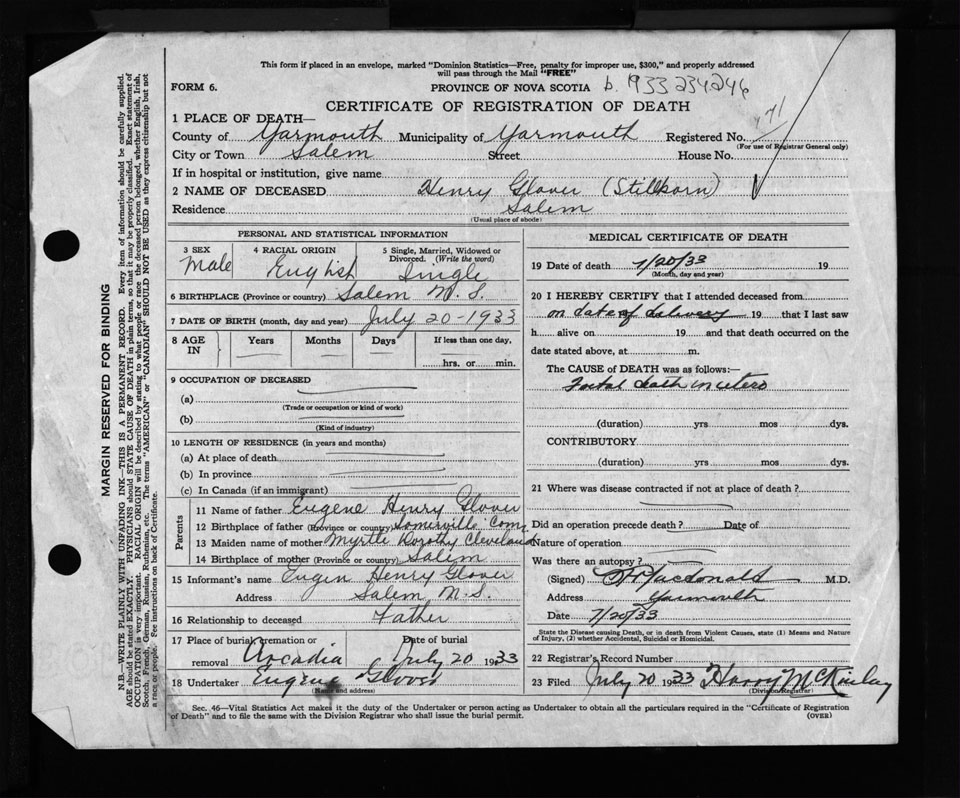 This form if placed in an envelope, marked "Dominion Statistics—Free, penalty for improper use, $300," and properly addressed
will pass through the Mail "FREE"
FORM 6. PROVINCE OF NOVA SCOTIA b. 1933 234246
CERTIFICATE OF REGISTRATION OF DEATH
1 PLACE OF DEATH—
County of Yarmouth Municipality of Yarmouth Registered No.
(For use of Registrar General only)
City or Town Salem Street House No.
If in hospital or institution, give name
2 NAME OF DECEASED Henry Glover (Stillborn)
Residence Salem
(Usual place of abode)
PERSONAL AND STATISTICAL INFORMATION
3 SEX 4 RACIAL ORIGIN 5 Single, Married, Widowed or
Divorced. (Write the word)
Male English Single
6 BIRTHPLACE (Province or country) Salem N.S.
7 DATE OF BIRTH (month, day and year) July 20-1933
8 AGE IN Years Months Days If less than one day,
hrs. or min.
9 OCCUPATION OF DECEASED
(a)
(Trade or occupation or kind of work)
(b)
(Kind of industry)
10 LENGTH OF RESIDENCE (in years and months)
(a) At place of death
(b) In province
(c) In Canada (if an immigrant)
Parents
11 Name of father Eugene Henry Glover
12 Birthplace of father (Province or country) Somerville Conn
13 Maiden name of mother Myrtle Dorothy Cleveland
14 Birthplace of mother (Province or country) Salem
15 Informant's name Eugen Henry Glover
Address Salem N.S.
16 Relationship to deceased Father
17 Place of burial, cremation or Date of burial
removal Arcadia July 20 1933
18 Undertaker Eugene Glover
(Name and address)
MEDICAL CERTIFICATE OF DEATH
19 Date of death 7/20/33 19
(Month, day and year)
20 I HEREBY CERTIFY that I attended deceased from
on date of delivery 19 that I last saw
h alive on 19 and that death occurred on the
date stated above, at m.
The CAUSE of DEATH was as follows:—
Foetal death in utero
(duration) yrs mos dys.
CONTRIBUTORY
(duration) yrs. mos. dys.
21 Where was disease contracted if not at place of death?
Did an operation precede death? Date of
Nature of operation
Was there an autopsy?
(Signed) Macdonald M.D.
Address Yarmouth
Date 7/20/33
State the Disease causing Death, or in death from Violent Causes, state (1) Means and Nature
of Injury, (2) whether Accidental, Suicidal or Homicidal.
22 Registrar's Record Number
23 Filed July 20 1933 Harry McKinlay
(Division Registrar)
Sec. 46—Vital Statistics Act makes it the duty of the Undertaker or person acting as Undertaker to obtain all the particulars required in the "Certificate of Registration
of Death" and to file the same with the Division Registrar who shall issue the burial permit. (OVER)
MARGIN RESERVED FOR BINDING
N.B.—WRITE PLAINLY WITH UNFADING INK—THIS IS A PERMANENT RECORD. Every item of information should be carefully supplied.
AGE should be stated EXACTLY. PHYSICIANS should STATE CAUSE OF DEATH in plain terms, so that it may be properly classified. Exact statement of
OCCUPATION is very important. RACIAL ORIGIN will be described by stating to what people or race the deceased person belonged, whether English, Irish,
Scotch, French, German, Russian, Ruthenian, etc. The terms "AMERICAN" or "CANADIAN" SHOULD NOT BE USED as they express citizenship but not
a race or people. See instructions on back of Certificate.